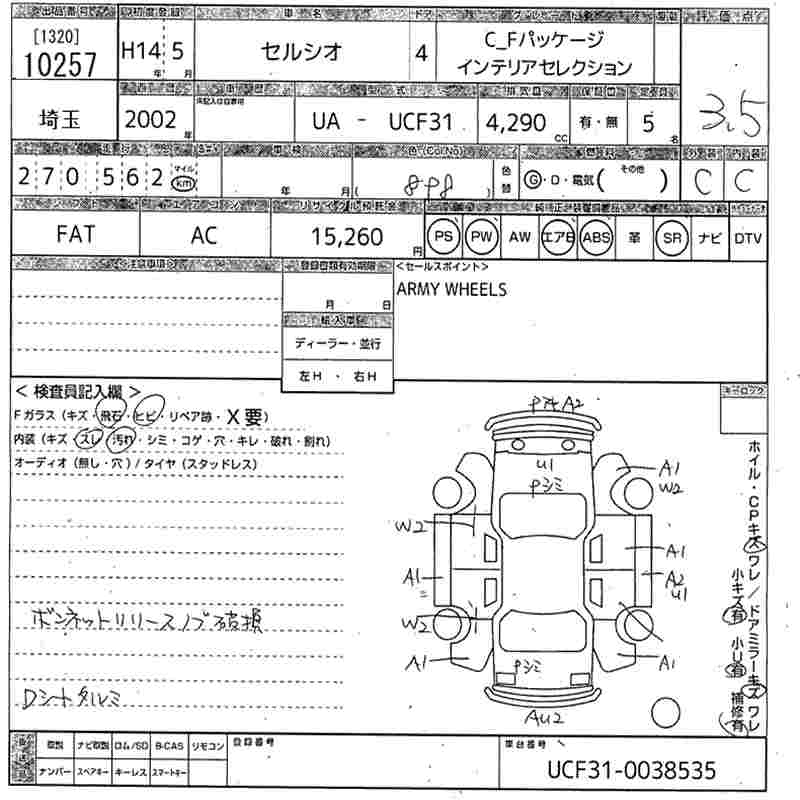 出品番号
初度登録
車名
ドア
[1320]
10257
H14 5
年 月
セルシオ
4
C_Fパッケージ
インテリアセレクション
評価点
3.5
埼玉
2002 年
車歴
型式
排気量
UA - UCF31
4,290 cc
有・無
5 名
車検
色(Col.No)
外装
内装
270562
マイル
km
年 月
( 898 )
色替
G・D・電気( その他 )
C
C
エアコン
リサイクル預託金
FAT
AC
15,260 円
PS
PW
AW
エアB
ABS
革
SR
ナビ
DTV
注意事項
登録書類有効期限
月 日
輸入車
ディーラー・並行
左H ・ 右H
<セールスポイント>
ARMY WHEELS
< 検査員記入欄 >
Fガラス (キズ・飛石・ヒビ・リペア跡・X要)
内装 (キズ・スレ・汚れ・シミ・コゲ・穴・キレ・破れ・割れ)
オーディオ (無し・穴) / タイヤ (スタッドレス)
ボンネットリリースノブ破損
Dシートタルミ
キーロック
A2
U1
Pシミ
A1
W2
W2
A1
A1
A2
U1
W2
A1
A1
Pシミ
AU2
ホイル・CPキズワレ/ドアミラーキズワレ
小キズ有 小U有 補修有
取説
ナビ取説
ロム/SD
B-CAS
リモコン
ナンバー
スペアキー
キーレス
スマートキー
登録番号
車台番号
UCF31-0038535